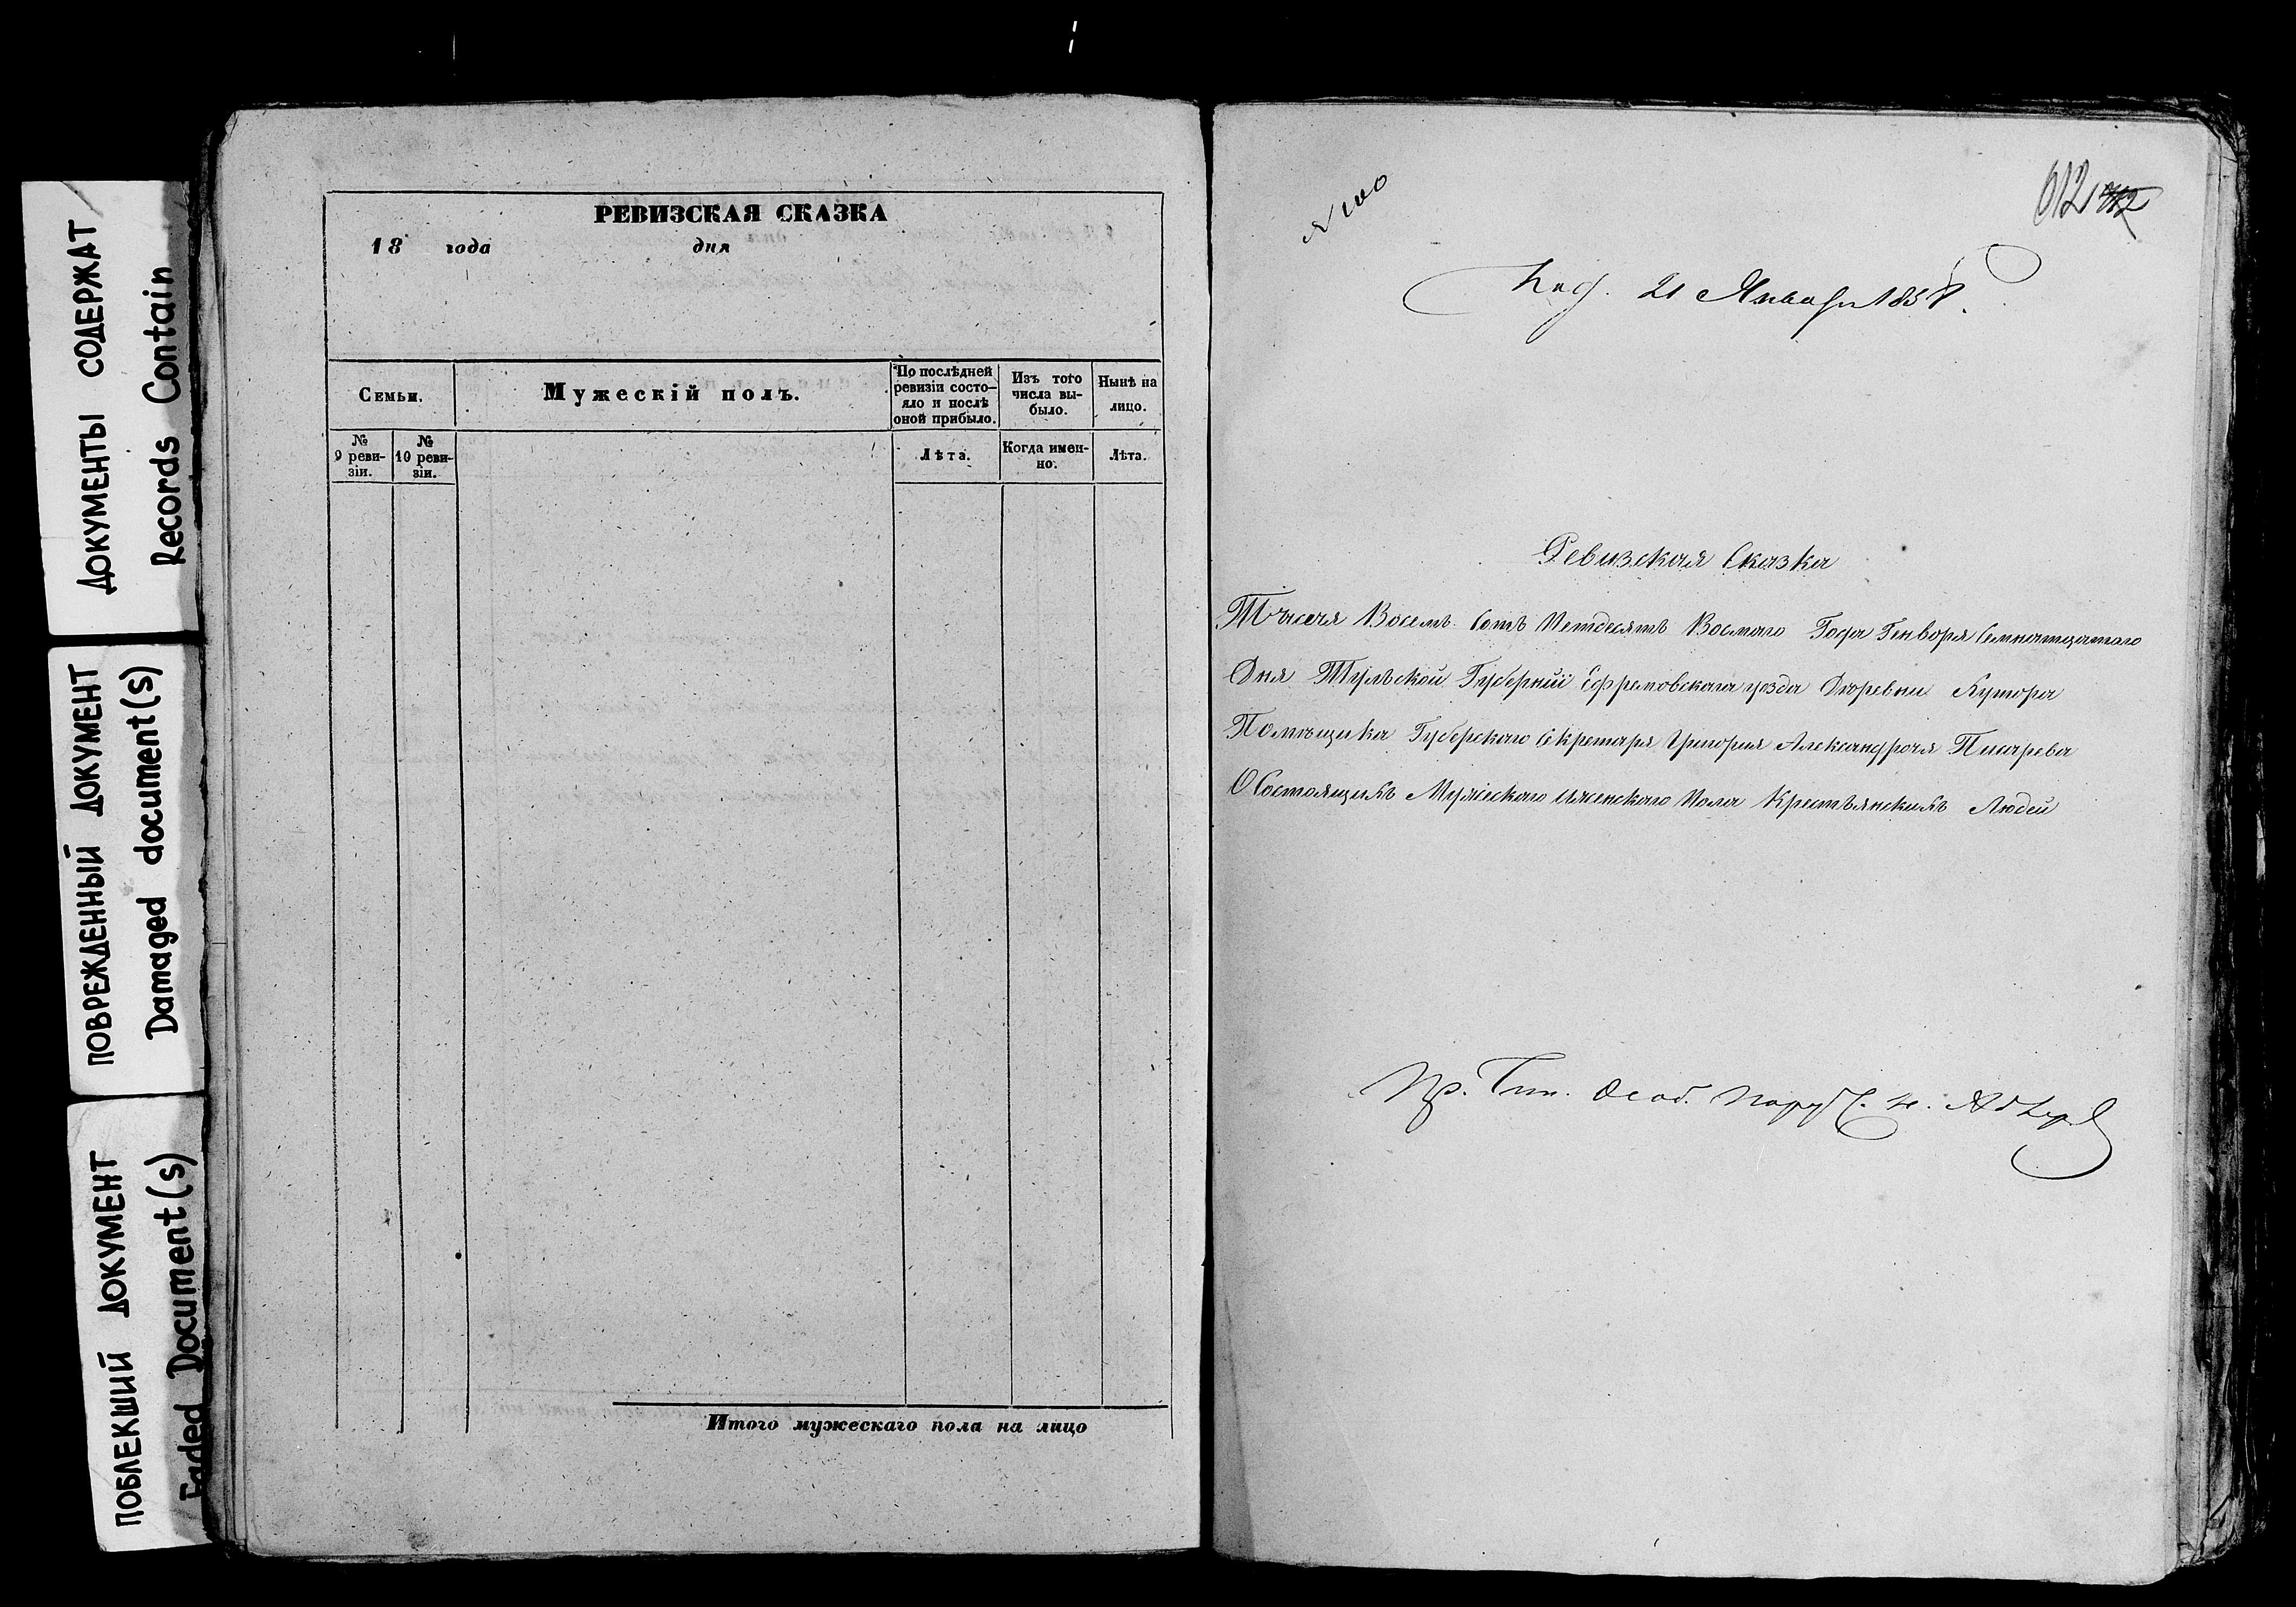 ДОКУМЕНТЫ СОДЕРЖАТ
Records Contain
ПОВРЕЖДЕННЫЙ ДОКУМЕНТ
Damaged document(s)
ПОБЛЕКШИЙ ДОКУМЕНТ
Faded Document(s)
РЕВИЗСКАЯ СКАЗКА
18 года дня
Семьи.
Мужескій полъ.
По послѣдней
ревизіи состо-
яло и послѣ
оной прибыло.
Изъ того
числа вы-
было.
Нынѣ на
лицо.
№
9 реви-
зіи.
№
10 реви-
зіи.
Лѣта.
Когда имен-
но.
Лѣта.
Итого мужескаго пола на лицо
612
21 Января 1858.
Ревизская Сказка
Тысеча Восемь Сотъ Петдесятъ Восмаго Года Генворя Семнатцатаго
Дня Тульской Губерніи Ефремовскага уезда Деревни Хутора
Помѣщика Губерскаго Секретаря Григория Писарева
О Состоящихъ Мужескаго иженскаго Пола Крестьянскихъ Людей